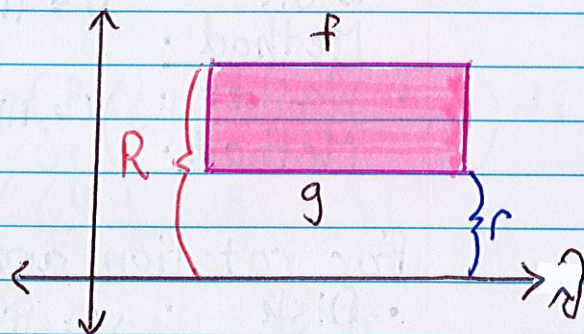 f
R
g
r